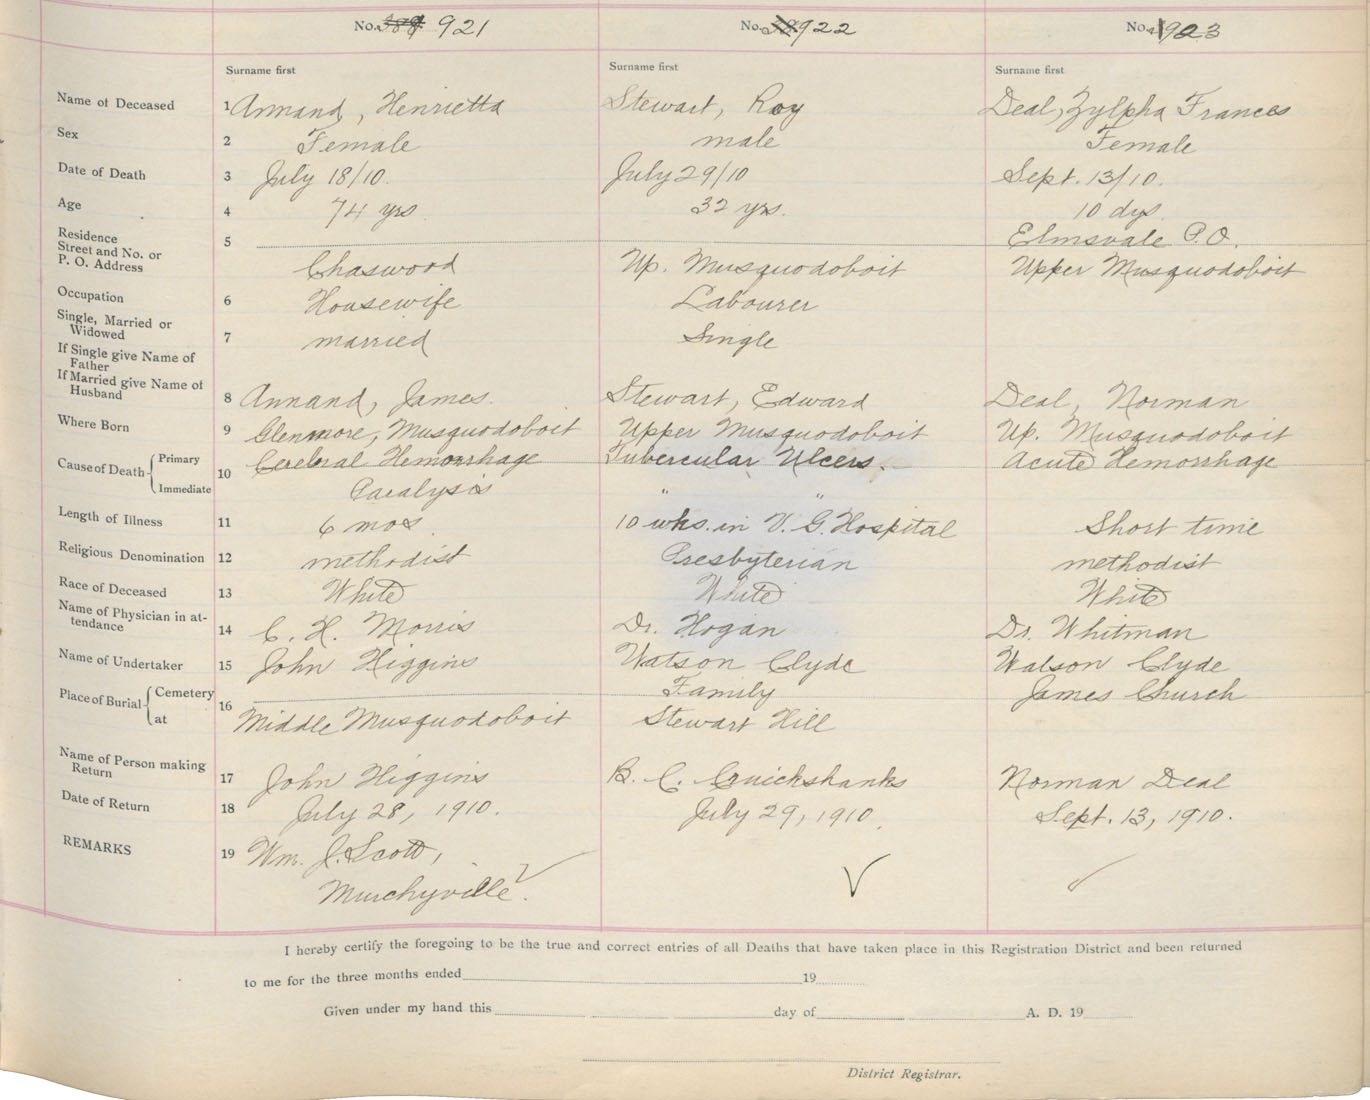 No. 921 No. 922 No. 923
Surname first Surname first Surname first
Name of Deceased 1 Annand, Henrietta Stewart, Roy Deal, Zylpha Frances
Sex 2 Female male Female
Date of Death 3 July 18/10. July 29/10 Sept. 13/10.
Age 4 74 yrs 32 yrs. 10 dys.
Residence 5 Elmsvale P.O.
Street and No. or
P. O. Address Chaswood Up. Musquodoboit Upper Musquodoboit
Occupation 6 Housewife Labourer
Single, Married or
Widowed 7 married Single
If Single give Name of
Father
If Married give Name of
Husband 8 Annand, James. Stewart, Edward Deal, Norman
Where Born 9 Glenmore, Musquodoboit Upper Musquodoboit Up. Musquodoboit
Cause of Death Primary 10 Cerebral Hemorrhage Tubercular Ulcers. Acute Hemorrhage
Immediate Paralysis " "
Length of Illness 11 6 mos 10 wks. in V. G. Hospital Short time
Religious Denomination 12 methodist Presbyterian methodist
Race of Deceased 13 White White White
Name of Physician in at-
tendance 14 C. H. Morris Dr. Hogan Dr. Whitman
Name of Undertaker 15 John Higgins Watson Clyde Watson Clyde
Place of Burial Cemetery 16 Family James Church
at Middle Musquodoboit Stewart Hill
Name of Person making
Return 17 John Higgins B. C. Cruickshanks Norman Deal
Date of Return 18 July 28, 1910. July 29, 1910. Sept. 13, 1910.
REMARKS 19 Wm. J. Scott,
Murchyville.
I hereby certify the foregoing to be the true and correct entries of all Deaths that have taken place in this Registration District and been returned
to me for the three months ended 19
Given under my hand this day of A. D. 19
District Registrar.